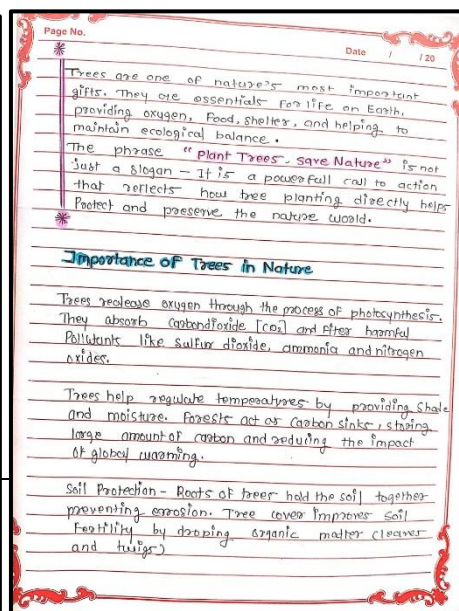 Page No.
Date / / 20
Trees are one of nature's most important
gifts. They are essentials for life on Earth,
providing oxygen, food, shelter, and helping to
maintain ecological balance.
The phrase "Plant Trees, Save Nature" is not
just a slogan - It is a powerfull call to action
that reflects how tree planting directly helps
Protect and preserve the nature world.
Importance of Trees in Nature
Trees realease oxygen through the process of photosynthesis.
They absorb carbondioxide [CO₂] and filter harmful
Pollutants like Sulfur dioxide, ammonia and nitrogen
oxides.
Trees help regulate temperatures by providing Shade
and moisture. Forests act as carbon sinks, storing
large amount of carbon and reducing the impact
of global warming.
Soil Protection - Roots of trees hold the soil together
preventing errosion. Tree cover improves Soil
Fertility by droping organic matter (leaves
and twigs)